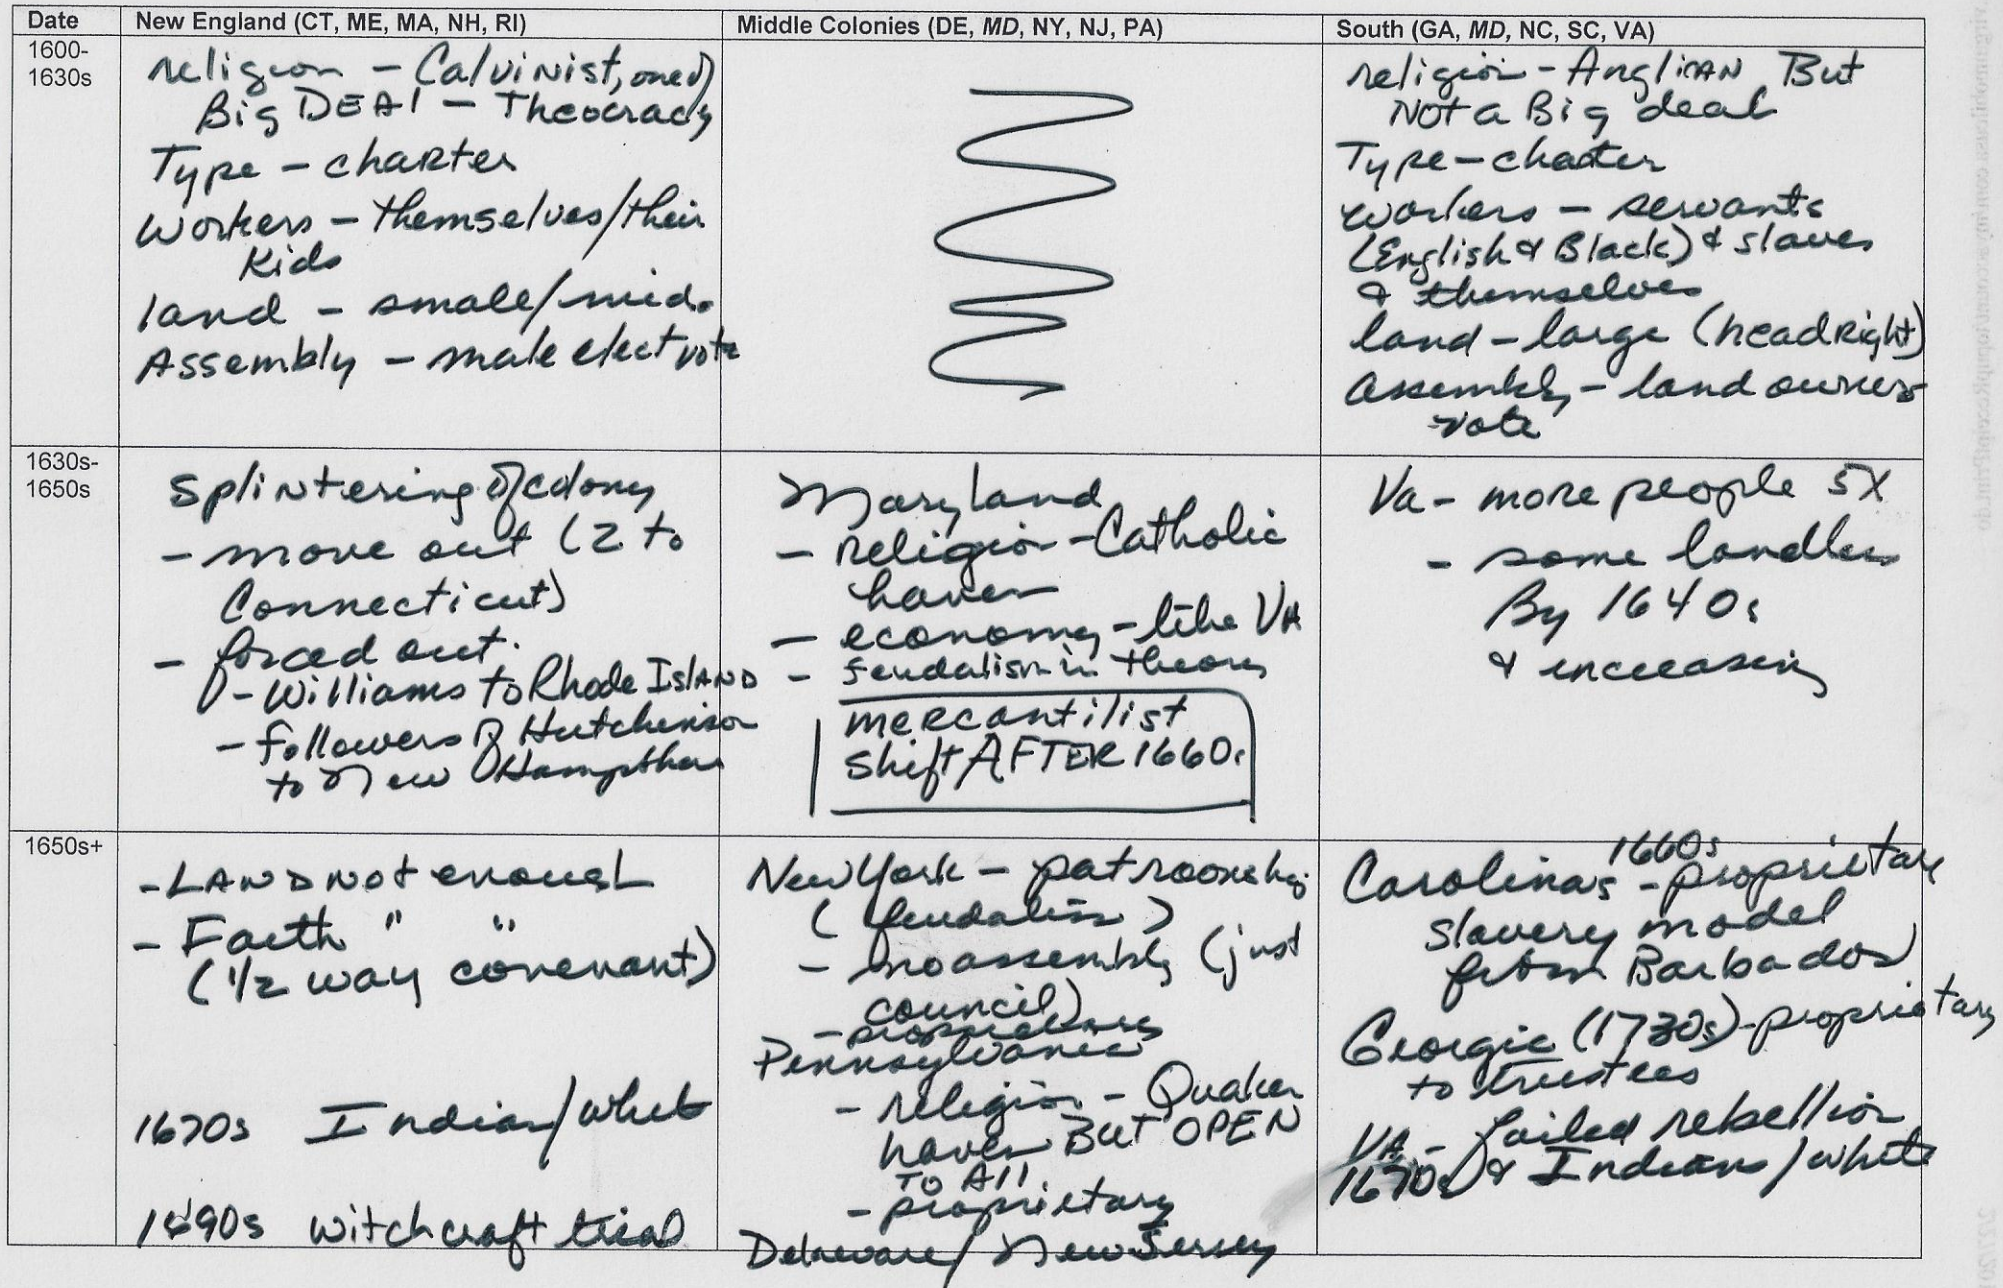 Date
New England (CT, ME, MA, NH, RI)
Middle Colonies (DE, MD, NY, NJ, PA)
South (GA, MD, NC, SC, VA)
1600-
1630s
religion - Calvinist,
Big DEAl - Theocracy
Type - charter
Workers - themselves/their
Kids
land - small/mid.
Assembly - male elect vote
religion - Anglican But
NOT a Big deal
Type - charter
workers - servants
(English & Black) & slaves
& themselves
land - large (headRight)
assembly - land owners
vote
1630s-
1650s
Splintering of colony
- move out (2 to
Connecticut)
- forced out.
- Williams to Rhode IslAND
- followers of Hutchinson
to New Hampshire
Maryland
- religion - Catholic
haven
- economy - like VA
- feudalism in theory
mercantilist
shift AFTER 1660s
Va - more people 5X
- some landless
By 1640s
& increasing
1650s+
- LAND not enough
- Faith " "
(1/2 way covenant)
1670s Indian/white
1690s witchcraft trial
New York - patroonship
(feudalism)
- no assembly (just
council)
- proprietary
Pennsylvania
- religion - Quaker
haven BUT OPEN
TO All.
- proprietary
Delaware/New Jersey
1660s
Carolinas - proprietary
slavery model
from Barbados
Georgia (1730s) - proprietary
to trustees
VA - failed rebellion
1670s & Indians/white